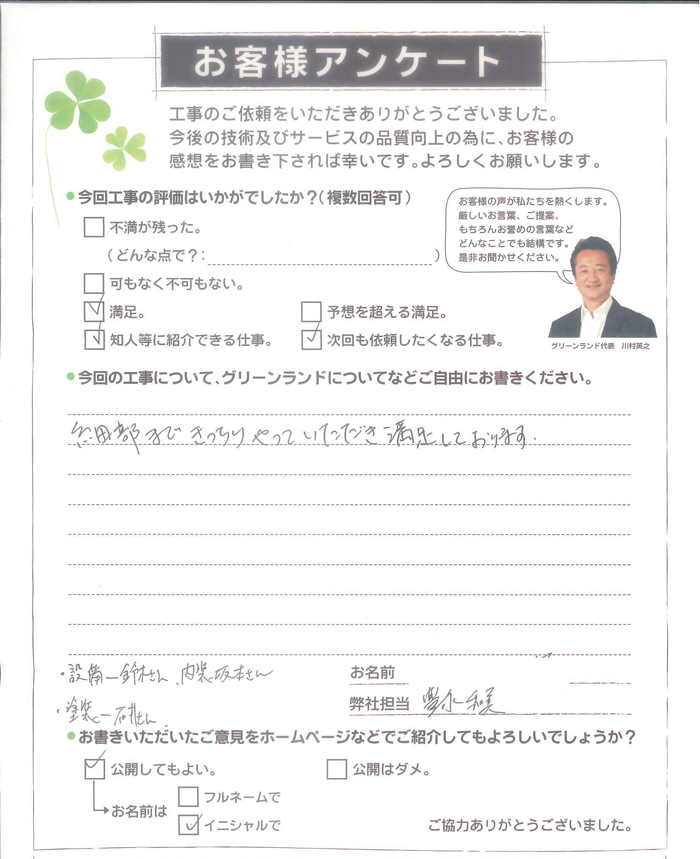 お客様アンケート
工事のご依頼をいただきありがとうございました。
今後の技術及びサービスの品質向上の為に、お客様の
感想をお書き下されば幸いです。よろしくお願いします。
●今回工事の評価はいかがでしたか?(複数回答可)
お客様の声が私たちを熱くします。
厳しいお言葉、ご提案、
もちろんお誉めの言葉など
どんなことでも結構です。
是非お聞かせください。
不満が残った。
(どんな点で?: )
可もなく不可もない。
満足。
予想を超える満足。
知人等に紹介できる仕事。
次回も依頼したくなる仕事。
グリーンランド代表 川村英之
●今回の工事について、グリーンランドについてなどご自由にお書きください。
細部まできっちりやっていただき満足しております.
・設備ー鈴木さん、内装坂本さん
お名前
・塗装ー石井さん
弊社担当
●お書きいただいたご意見をホームページなどでご紹介してもよろしいでしょうか?
公開してもよい。
公開はダメ。
お名前は
フルネームで
イニシャルで
ご協力ありがとうございました。